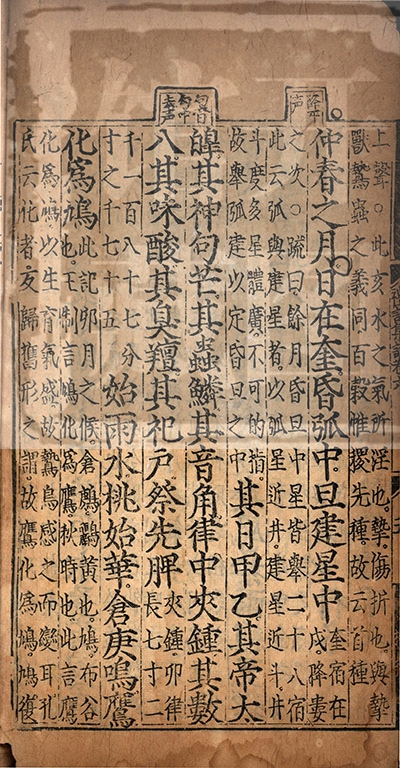 上聲○此亥水之氣所淫也摯傷折也與摯
獸鷙蟲之義同百穀惟稷先種故云首種
仲春之月日在奎昏弧中旦建星中
奎宿在
戌降婁
之次○疏曰餘月昏旦中星皆舉二十八宿
此云弧與建星者以弧星近井建星近斗井
斗度多星體廣不可的指
故舉弧建以定昏旦之中
其日甲乙其帝太
皥其神句芒其蟲鱗其音角律中夾鍾其數
八其味酸其臭羶其祀戶祭先脾
夾鍾卯律
長七寸二
千一百八十七分
寸之千七十五
始雨水桃始華倉庚鳴鷹
化爲鳩
此記卯月之候倉庚鸝黃也鳩布谷
也王制言鳩化爲鷹秋時也此言鷹
化爲鳩以生育氣盛故鷙鳥感之而變耳孔
氏云化者反歸舊形之謂故鷹化爲鳩鳩復